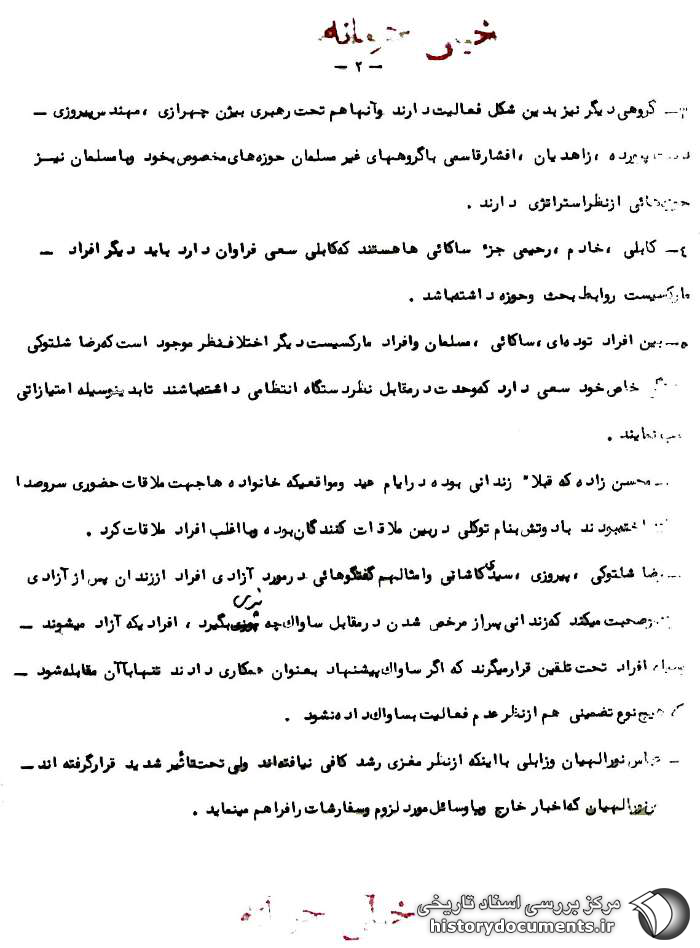 خیلی محرمانه
– ۲ –
گروهی دیگر نیز بدین شکل فعالیت دارند وآنهاهم تحت رهبری بیژن چهرازی ، مهندس پیروزی –
زاهدیان ، افشارقاسمی باگروههای غیر مسلمان حوزه های مخصوص بخود وبامسلمان نیــز
ازنظراستراتژی دارند .
٤– کابلی ، خادم ، رحیمی جزء ساکائی ها هستند که کابلی سعی فراوان دارد باید دیگر افراد –
مارکسیست روابط بحث وحوزه داشته باشد .
۵–بین افراد توده ای ، ساکائی ، مسلمان وافراد مارکسیست دیگر اختلاف نظر موجود است که رضا شلتوکی
خاص خود سعی دارد که وحدت درمقابل نظر دستگاه انتظامی داشته باشند تابدینوسیله امتیازاتی
نمایند .
محسن زاده که قبلاً زندانی بوده درایام عید ومواقعیکه خانواده هاجهت ملاقات حضوری سروصدا
بودند بادوتش بنام توکلی دربین ملاقات کنندگان بوده وبااغلب افراد ملاقات کرد .
رضا شلتوکی ، پیروزی ، سیدی کاشانی وامثالهم گفتگوهائی درمورد آزادی افراد اززندان پس از آزادی
صحبت میکند که زندانی پس از مرخص شدن درمقابل ساواك چه بگیرد ، افرادیکه آزاد میشوند –
افراد تحت تلقین قرارمیگرند که اگر ساواك پیشنهاد بعنوان همکاری دادند تنهاباآن مقابله شود –
هیچ نوع تضمینی هم ازنظر عدم فعالیت بساواك داده نشود .
– عباس نورالهیان وزابلی بااینکه ازنظر مغزی رشد کافی نیافته اند ولی تحت تأثیر شدید قرارگرفته اند –
نورالهیان که اخبار خارج ویاوسائل مورد لزوم وسفارشات رافراهم مینماید .
خیلی محرمانه
مرکز بررسی اسناد تاریخی
historydocuments.ir